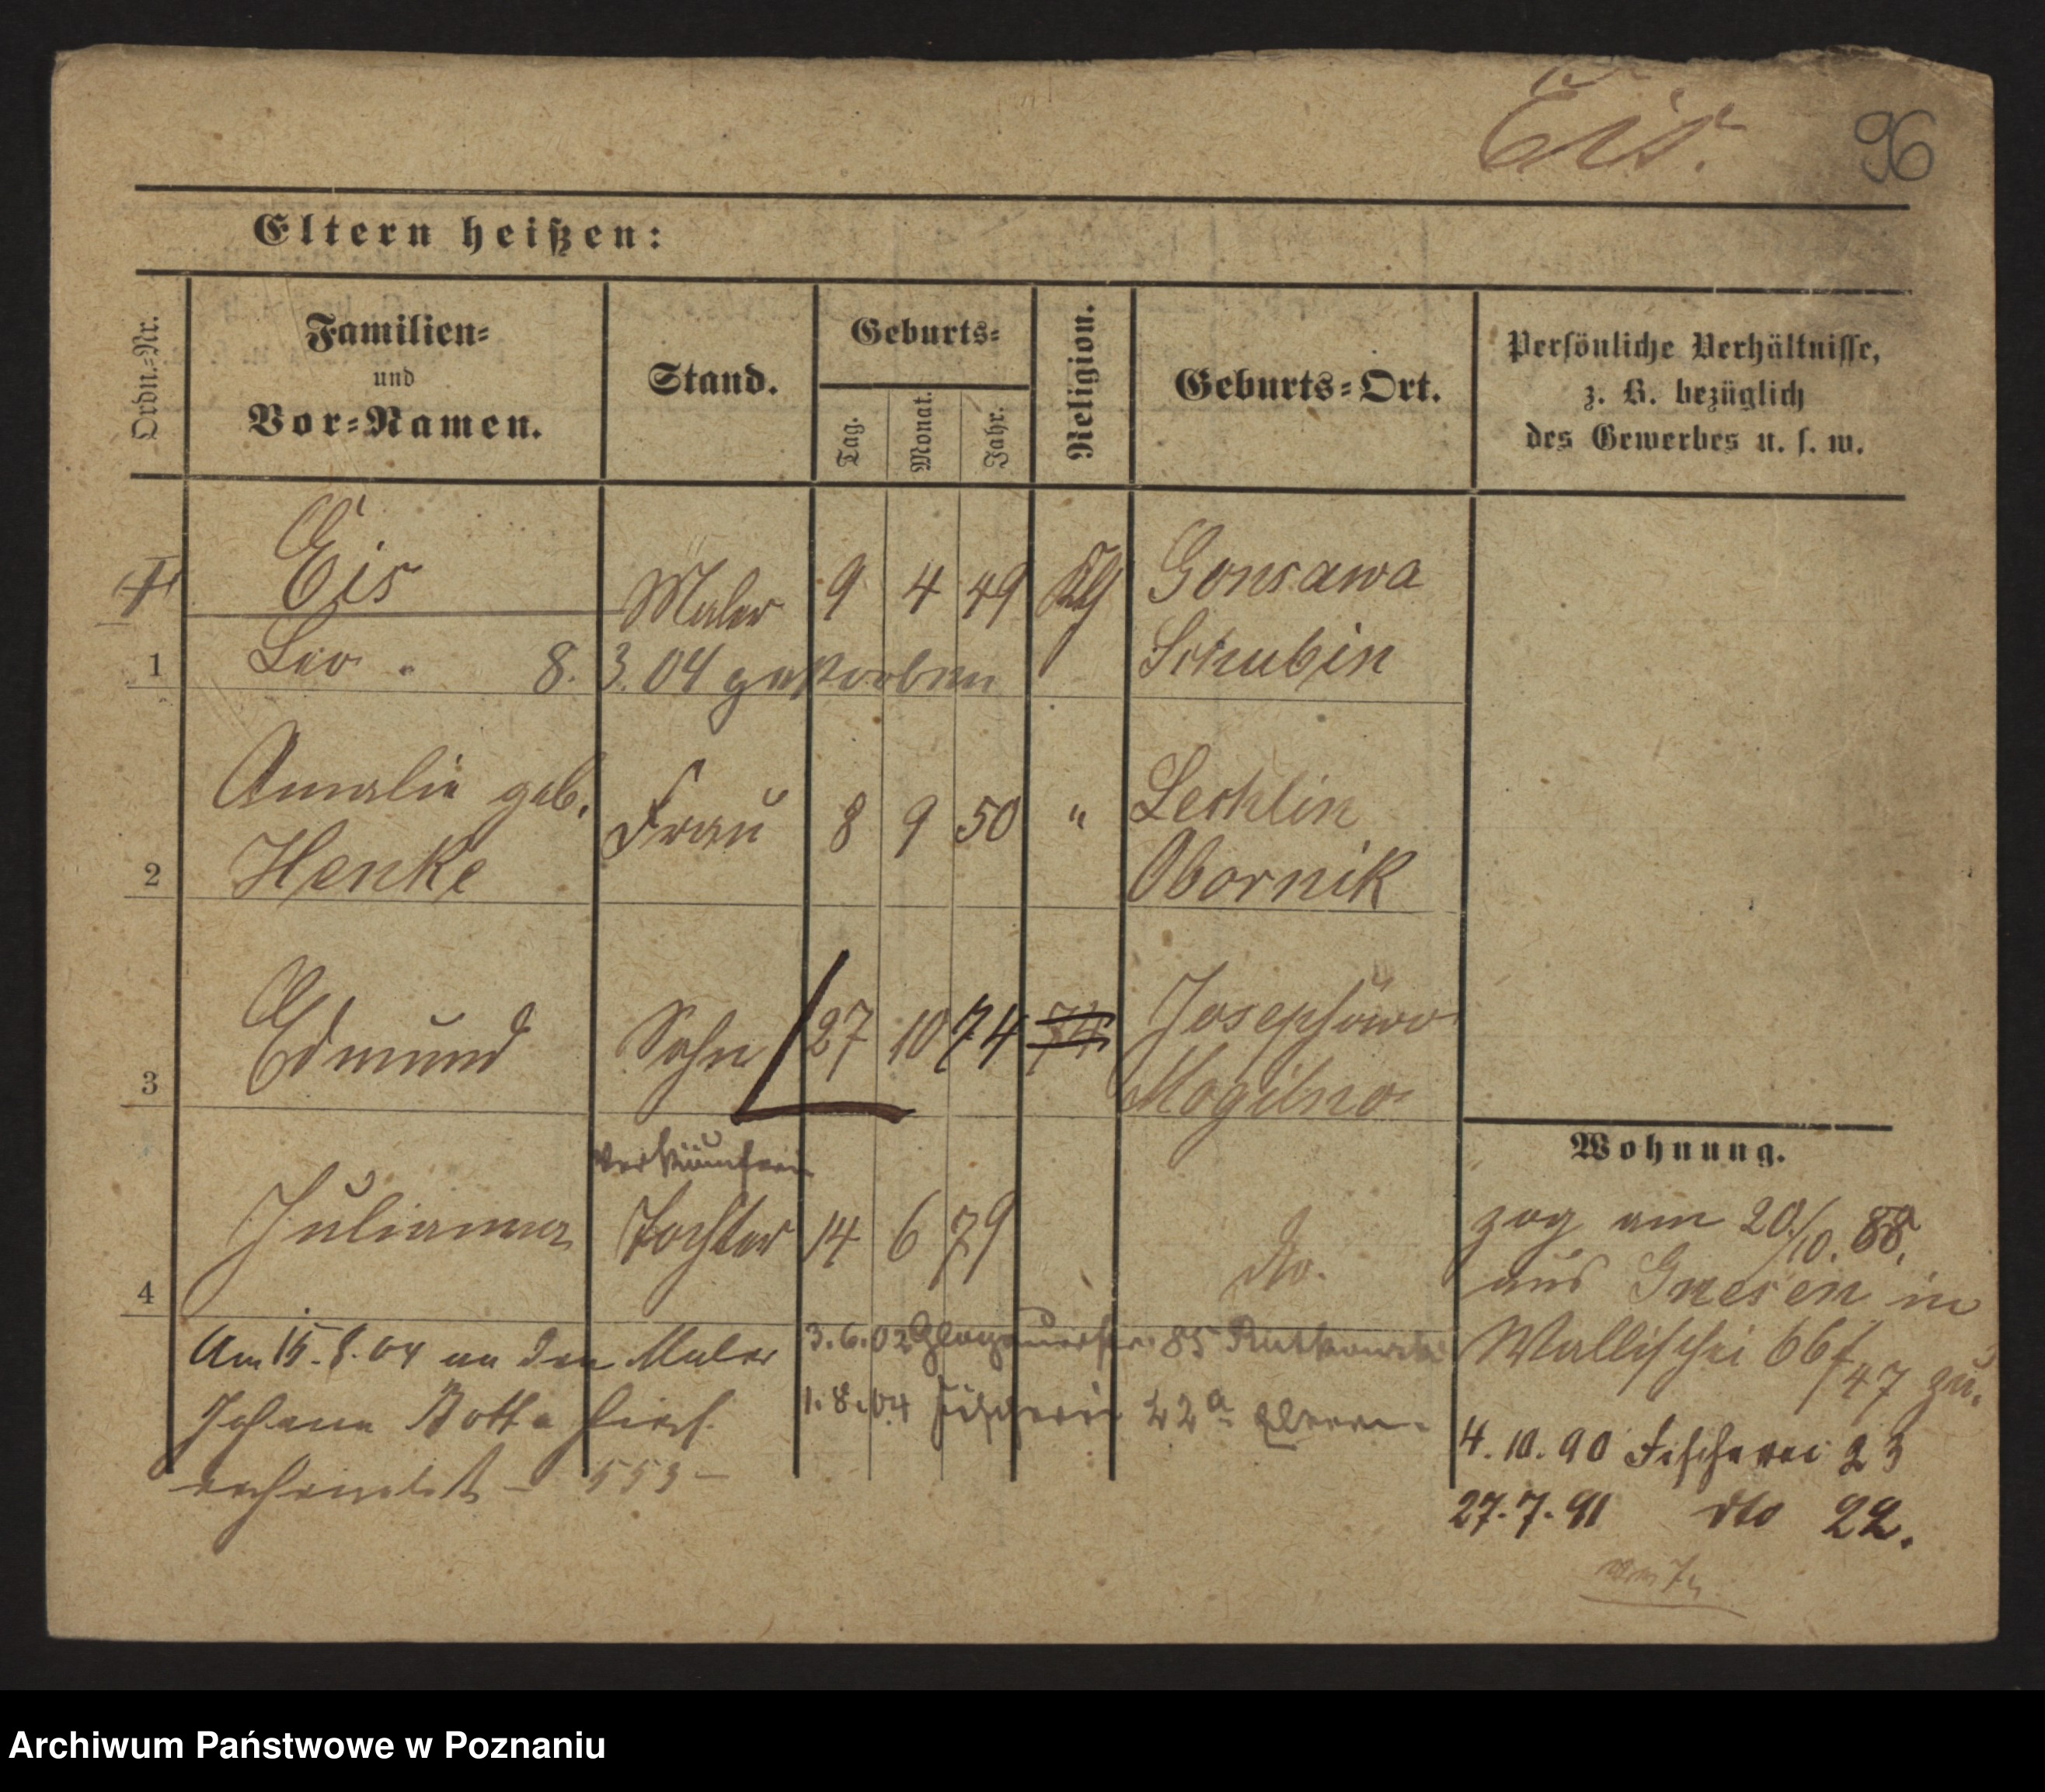 Eis. 96
Eltern heißen:
Ordn.=Nr.
Familien=
und
Vor=Namen.
Stand.
Geburts=
Tag.
Monat.
Jahr.
Religion.
Geburts=Ort.
Persönliche Verhältnisse,
z. B. bezüglich
des Gewerbes u. s. w.
Eis Maler 9 4 49 Gonsawa
1 Leo. Schubin
8. 3. 04 gestorben
Amalie geb. Frau 8 9 50 " Lechlin
2 Henke Obornik
3 Edmund Sohn 27 10 74 74 Josephowo
Mogilno
4 Julianna Tochter 14 6 79 do.
Am 15. 8. 04 an den Maler
Johann Rotta hier
verheiratet - 553 -
3. 6. 02 85 Rutkowski
1. 8. 04 Fischerei 22a
Wohnung.
zog am 20/10. 88.
aus Gnesen in
Wallischei 66/47 zu.
4. 10. 90 Fischerei 23
27. 7. 91 dto 22.
Archiwum Państwowe w Poznaniu